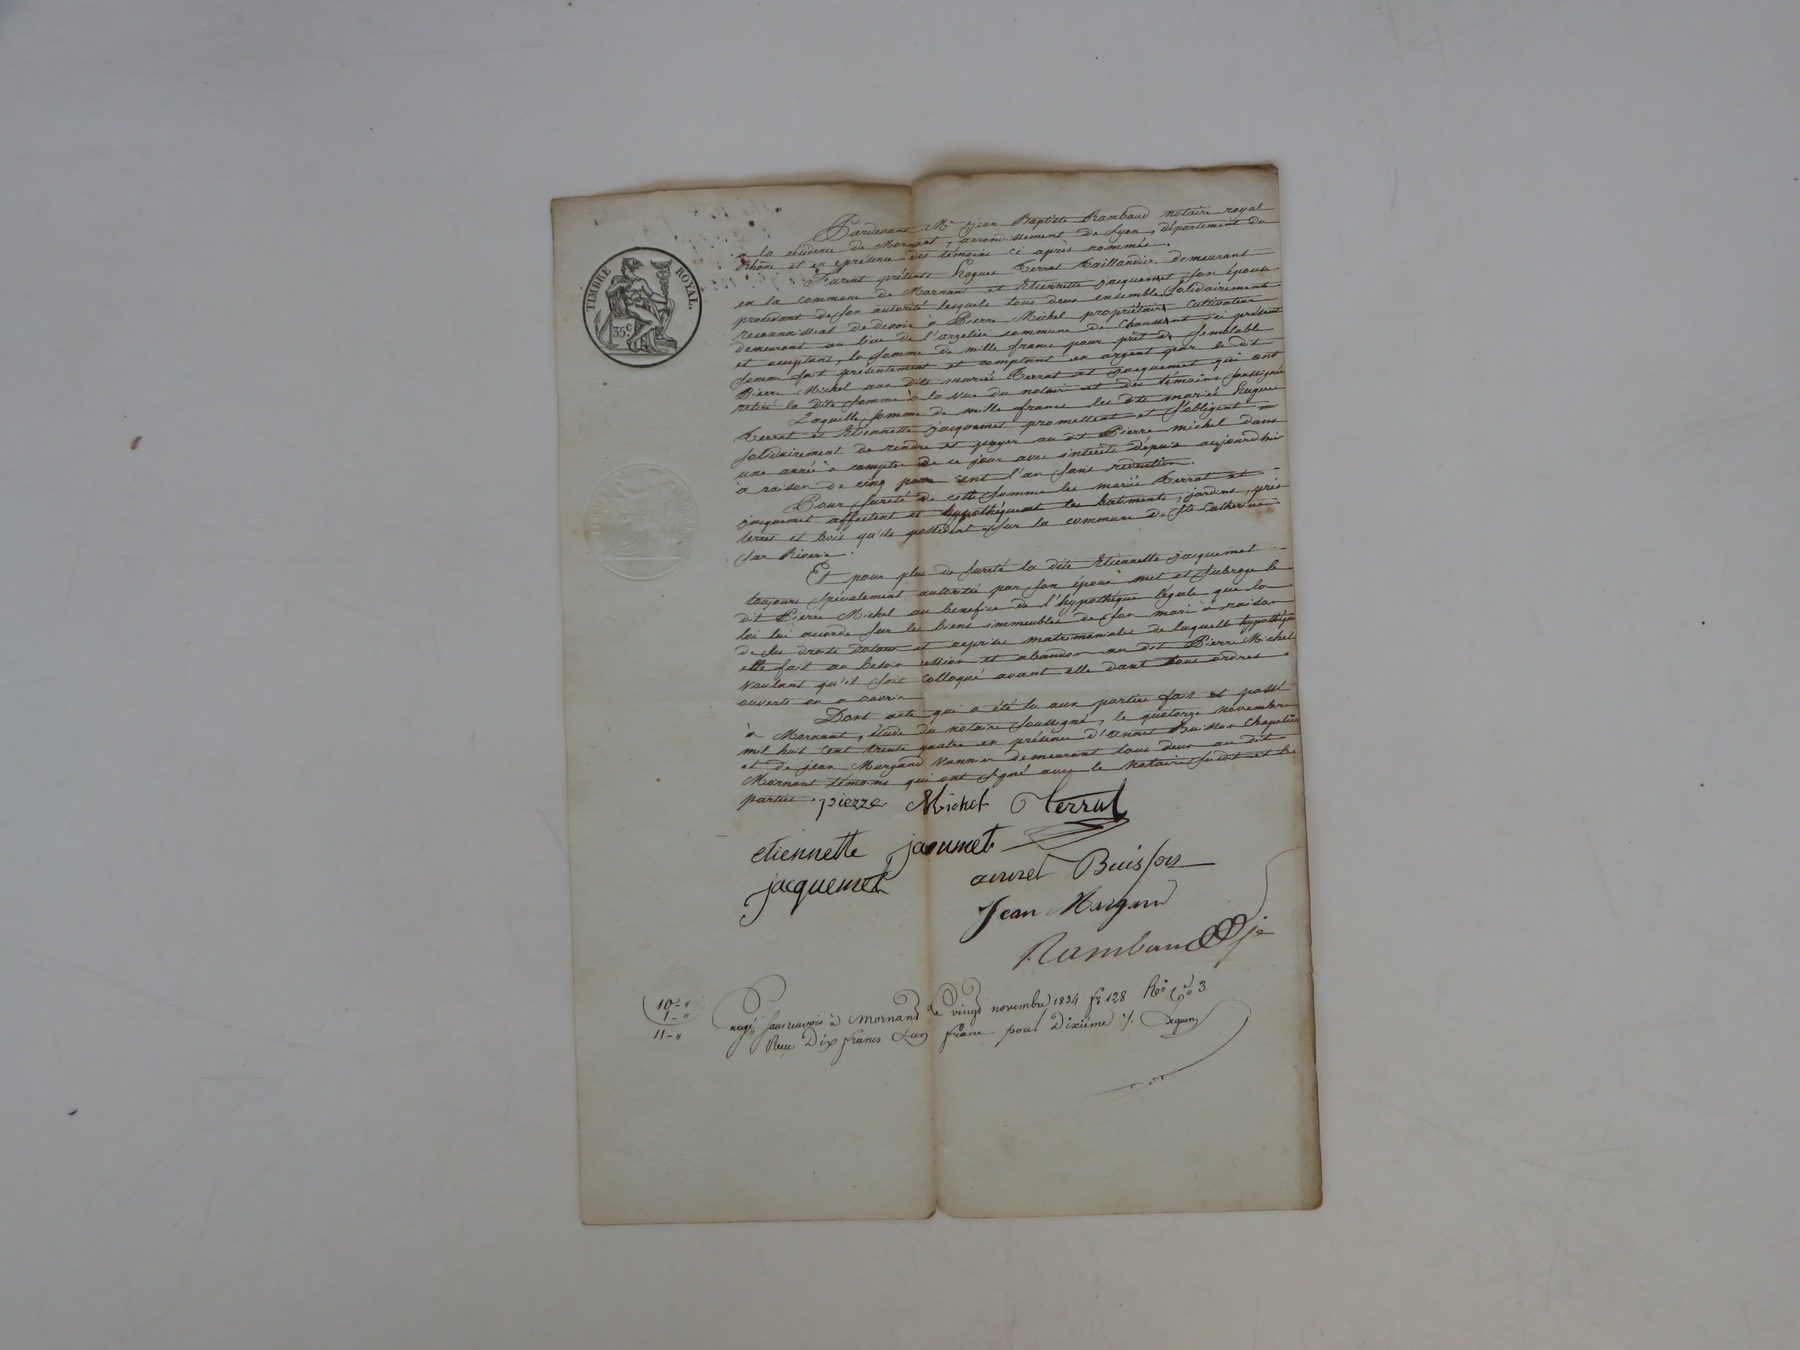 TIMBRE ROYAL.
35 c.
Pardevant Me Jean Baptiste Rambaud notaire royal
a la residence de Mornant, arrondissement de Lyon, département du
Rhône et en presence des témoins ci après nommés.
Furent présents Hugues Terrat Taillandier demeurant
en la commune de Mornant et Etiennette jacquemet son épouse
procedant de son autorité lesquels tous deux ensemble solidairement
reconnaissent de devoir à Pierre Michel propriétaire Cultivateur
demeurant au lieu de l'argelier commune de Chaussant ici présent
et acceptant, la somme de mille francs pour prêt de semblable
somme fait présentement et comptant en argent par le dit
Pierre Michel aux dits mariés Terrat et Jacquemet qui ont
retiré la dite somme à la vue du notaire et des témoins soussignés
Laquelle somme de mille francs les dits mariés hugues
Terrat et Etiennette jacquemet promettent et s'obligent
solidairement de rendre et payer au dit Pierre michel dans
une année à compter de ce jour avec intérêts depuis aujourdhui
à raison de cinq pour cent l'an sans reduction.
Pour sureté de cette somme les mariés Terrat et
jacquemet affectent et hypothéquent les batiments, jardins, prés
terres et bois qu'ils possèdent sur la commune de Ste Catherine
sur Riverie.
Et pour plus de sureté la dite Etiennette jacquemet
toujours spécialement autorisée par son époux met et subroge le
dit Pierre Michel au benefice de l'hypothèque légale que la
loi lui accorde sur les biens immeubles de son mari à raison
de ses droits dotaux et reprises matrimoniales de laquelle hypothèque
elle fait au besoin cession et abandon au dit Pierre Michel
voulant qu'il soit colloqué avant elle dans tous ordres
ouverts ou a ouvrir
Dont acte qui a été lu aux parties fait et passé
à Mornant, étude du notaire soussigné, le quatorze novembre
mil huit cent trente quatre en présence d'annet Buisson Chapelier
et de jean Murgand Vannier demeurant tous deux au dit
Mornant témoins qui ont signé avec le notaire susdit et les
parties.
pierre Michel Terrat
etiennette jaoumet
jacquemet
annet Buisson
Jean Murgand
Rambaud
10 - "
1 - "
11 - "
sans renvois à Mornant le vingt novembre 1834 fo 128
Reçu Dix francs & un franc pour Dixième